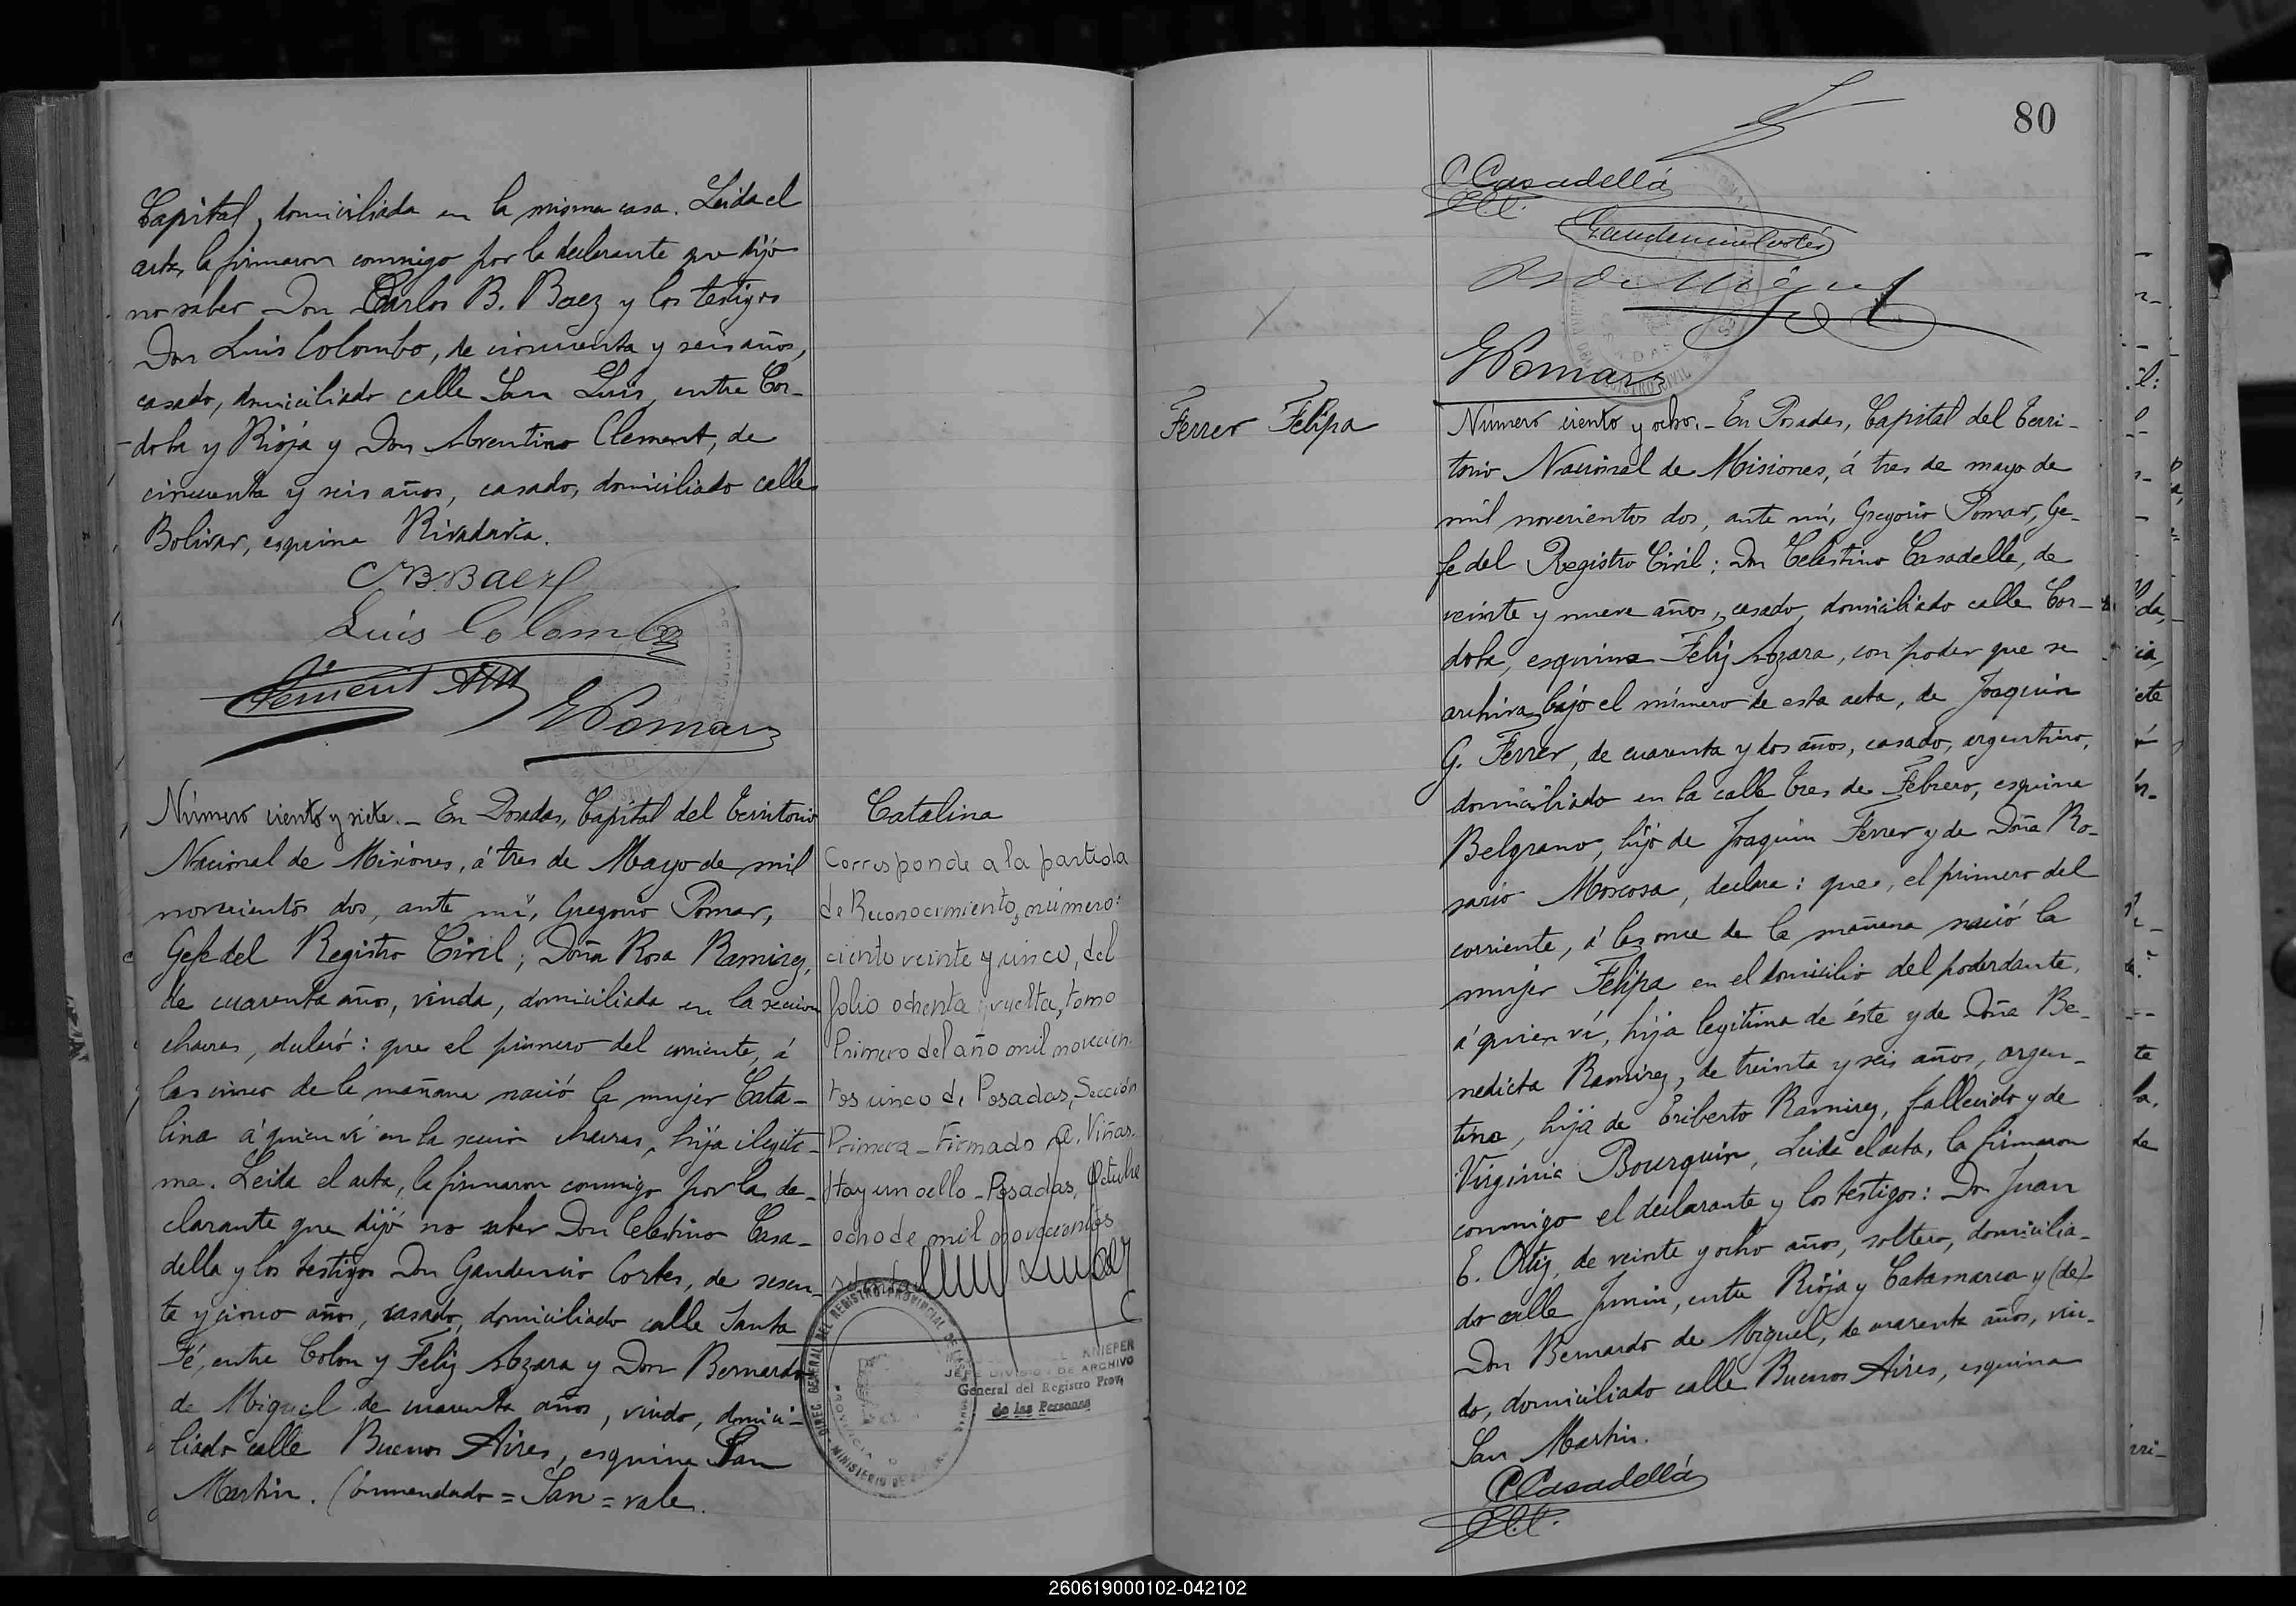 Capital, domiciliada en la misma casa. Leida el
acta, la firmaron conmigo por la declarante que dijó
no saber Don Carlos B. Baez y los testigos
Don Luis Colombo, de cincuenta y seis años,
casado, domiciliado calle San Luis, entre Cor-
doba y Rioja y Don Aventino Clement, de
cincuenta y seis años, casado, domiciliado calle
Bolivar, esquina Rivadavia.
C.B. Baez
Luis Colombo
Clement
G Pomar
Número ciento y siete. - En Posadas, Capital del Territorio
Nacional de Misiones, á tres de Mayo de mil
novecientos dos, ante mí, Gregorio Pomar,
Gefe del Registro Civil; Doña Rosa Ramirez,
de cuarenta años, viuda, domiciliada en la sección
chacras, declaró: que el primero del corriente, á
las cinco de la mañana nació la mujer Cata-
lina á quien ví en la sección chacras, hija ilegíti-
ma. Leida el acta, la firmaron conmigo por la de-
clarante que dijó no saber Don Celestino Casa-
della y los testigos Don Gaudencio Cortes, de sesen-
ta y cinco años, casado, domiciliado calle Santa
Fé, entre Colon y Feliz Azara y Don Bernardo
de Miguel de cuarenta años, viudo, domici-
liado calle Buenos Aires, esquina San
Martin. Enmendado = San = vale.
Catalina
Corresponde a la partida
de Reconocimiento, número:
ciento veinte y cinco, del
folio ochenta vuelta, tomo
Primero del año mil novecien-
tos cinco de Posadas, Sección
Primera - Firmado A. Viñas.
Hay un sello - Posadas, Octubre
ocho de mil novecientos
DIREC. GENERAL DEL REGISTRO PROVINCIAL DE LAS
MINISTERIO DE
KNIEPER
JEFE DIVISION DE ARCHIVO
General del Registro Prov.
de las Personas
80
C Casadellá
Gaudencio Cortés
B de Miguel
G Pomar
Ferrer Felipa
Número ciento y ocho. - En Posadas, Capital del Terri-
torio Nacional de Misiones, á tres de mayo de
mil novecientos dos, ante mí, Gregorio Pomar, Ge-
fe del Registro Civil: Don Celestino Casadella, de
veinte y nueve años, casado, domiciliado calle Cor-
doba, esquina Feliz Azara, con poder que se
archiva bajo el número de esta acta, de Joaquin
G. Ferrer, de cuarenta y dos años, casado, argentino,
domiciliado en la calle Tres de Febrero, esquina
Belgrano, hijo de Joaquin Ferrer y de Doña Ro-
sario Moscosa, declara: que, el primero del
corriente, á las once de la mañana nació la
mujer Felipa en el domicilio del poderdante,
á quien ví, hija legítima de éste y de Doña Be-
nedicta Ramirez, de treinta y seis años, argen-
tina, hija de Eriberto Ramirez, fallecido y de
Virginia Bourquin, Leida el acta, la firmaron
conmigo el declarante y los testigos: Don Juan
E. Ortiz, de veinte y ocho años, soltero, domicilia-
do calle Junin, entre Rioja y Catamarca y (de)
Don Bernardo de Miguel, de cuarenta años, viu-
do, domiciliado calle Buenos Aires, esquina
San Martin.
C Casadellá
260619000102-042102